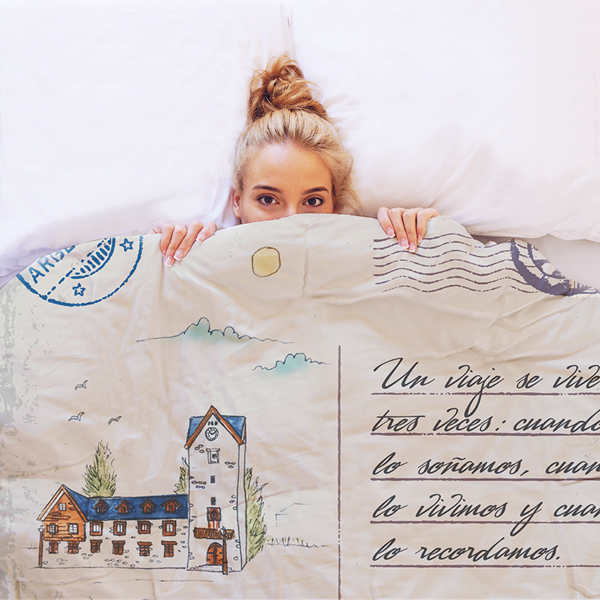 Un viaje se vive
tres veces: cuando
lo soñamos, cuan
lo vivimos y cuan
lo recordamos.